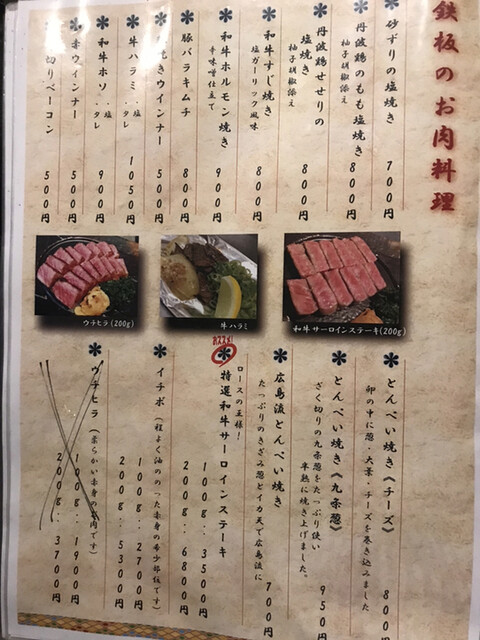 鉄板のお肉料理
砂ずりの塩焼き 700円
丹波鶏のもも塩焼き 800円
柚子胡椒添え
丹波鶏せせりの
塩焼き 800円
柚子胡椒添え
和牛すじ焼き 800円
塩ガーリック風味
和牛ホルモン焼き 900円
辛味噌仕立て
豚バラキムチ 800円
焼きウインナー 500円
牛ハラミ・塩・タレ 1050円
和牛ホソ・塩・タレ 900円
赤ウインナー 500円
切りベーコン 500円
ウチヒラ(200g)
牛ハラミ
和牛サーロインステーキ(200g)
とんぺい焼き《チーズ》 800円
卵の中に葱・大葉・チーズを巻き込みました
とんぺい焼き《九条葱》 950円
ざく切りの九条葱をたっぷり使い
半熟に焼き上げました。
広島流とんぺい焼き 700円
たっぷりのきざみ葱とイカ天で広島流に
おススメ!
特選和牛サーロインステーキ
ロースの王様!
100g:3500円
200g:6800円
イチボ(程よく油ののった赤身の希少部位です)
100g:2700円
200g:5300円
ウチヒラ(柔らかい赤身のお肉です)
100g:1900円
200g:3700円